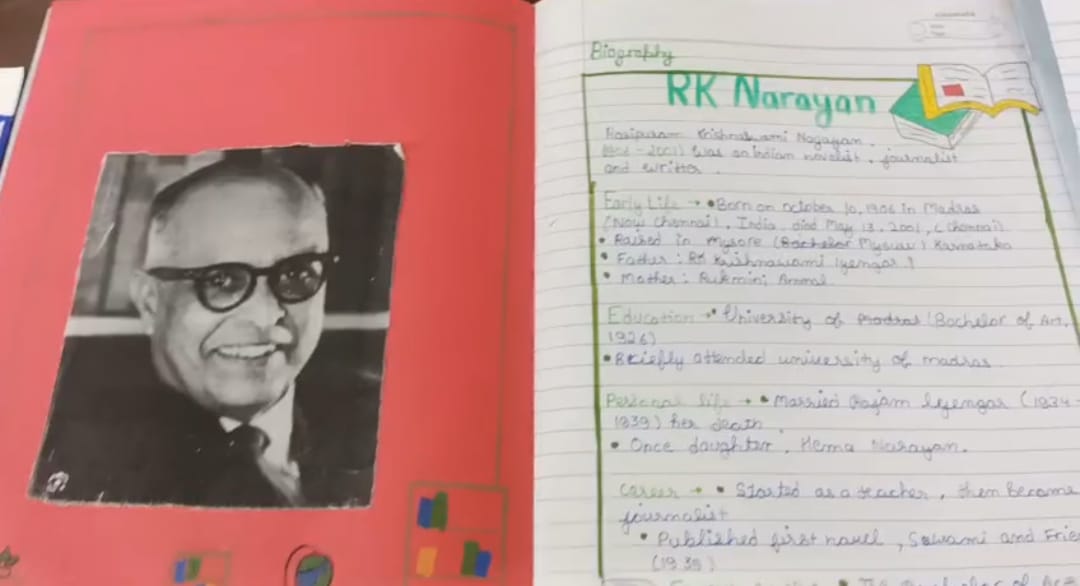 classmate
Date
Page
Biography
RK Narayan
Rasipuram Krishnaswami Nagayan.
1906 - 2001) was an Indian novelist, journalist
and writter.
Early Life → • Born on october 10, 1906 in Madras
(Now Chennai), India, died May 13, 2001, (Chennai)
• Raised in mysore (Bachelor ) Karnataka
• Father : RK Krishnaswami Iyengar
• Mother : Rukmini Ammal
Education → • University of Madras (Bachelor of Art,
1926)
• Briefly attended university of madras
Personal life → • Married Rajam Iyengar (1934 -
1939) her death.
• Once daughter, Hema Narayan.
Career → • Started as a teacher, then became
journalist
• Published first novel, Sawami and Frie
(1935)